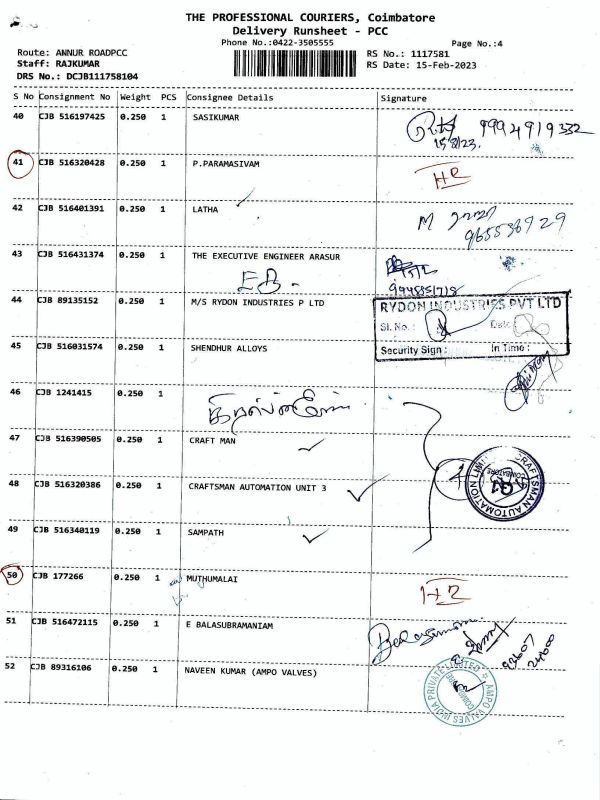 THE PROFESSIONAL COURIERS, Coimbatore
Delivery Runsheet - PCC
Phone No.:0422-3505555
Page No.:4
Route: ANNUR ROADPCC
RS No.: 1117581
Staff: RAJKUMAR
RS Date: 15-Feb-2023
DRS No.: DCJB111758104
S No Consignment No Weight PCS Consignee Details Signature
40 CJB 516197425 0.250 1 SASIKUMAR
9994919332
41 CJB 516320428 0.250 1 P.PARAMASIVAM
42 CJB 516401391 0.250 1 LATHA
M
43 CJB 516431374 0.250 1 THE EXECUTIVE ENGINEER ARASUR
EB
44 CJB 89135152 0.250 1 M/S RYDON INDUSTRIES P LTD
RYDON INDUSTRIES PVT LTD
Sl. No.: Date:
Security Sign: In Time:
45 CJB 516031574 0.250 1 SHENDHUR ALLOYS
46 CJB 1241415 0.250 1
47 CJB 516390505 0.250 1 CRAFT MAN
48 CJB 516320386 0.250 1 CRAFTSMAN AUTOMATION UNIT 3
CRAFTSMAN AUTOMATION
49 CJB 516340119 0.250 1 SAMPATH
50 CJB 177266 0.250 1 MUTHUMALAI
51 CJB 516472115 0.250 1 E BALASUBRAMANIAM
52 CJB 89316106 0.250 1 NAVEEN KUMAR (AMPO VALVES)
AMPO VALVES INDIA PRIVATE LIMITED